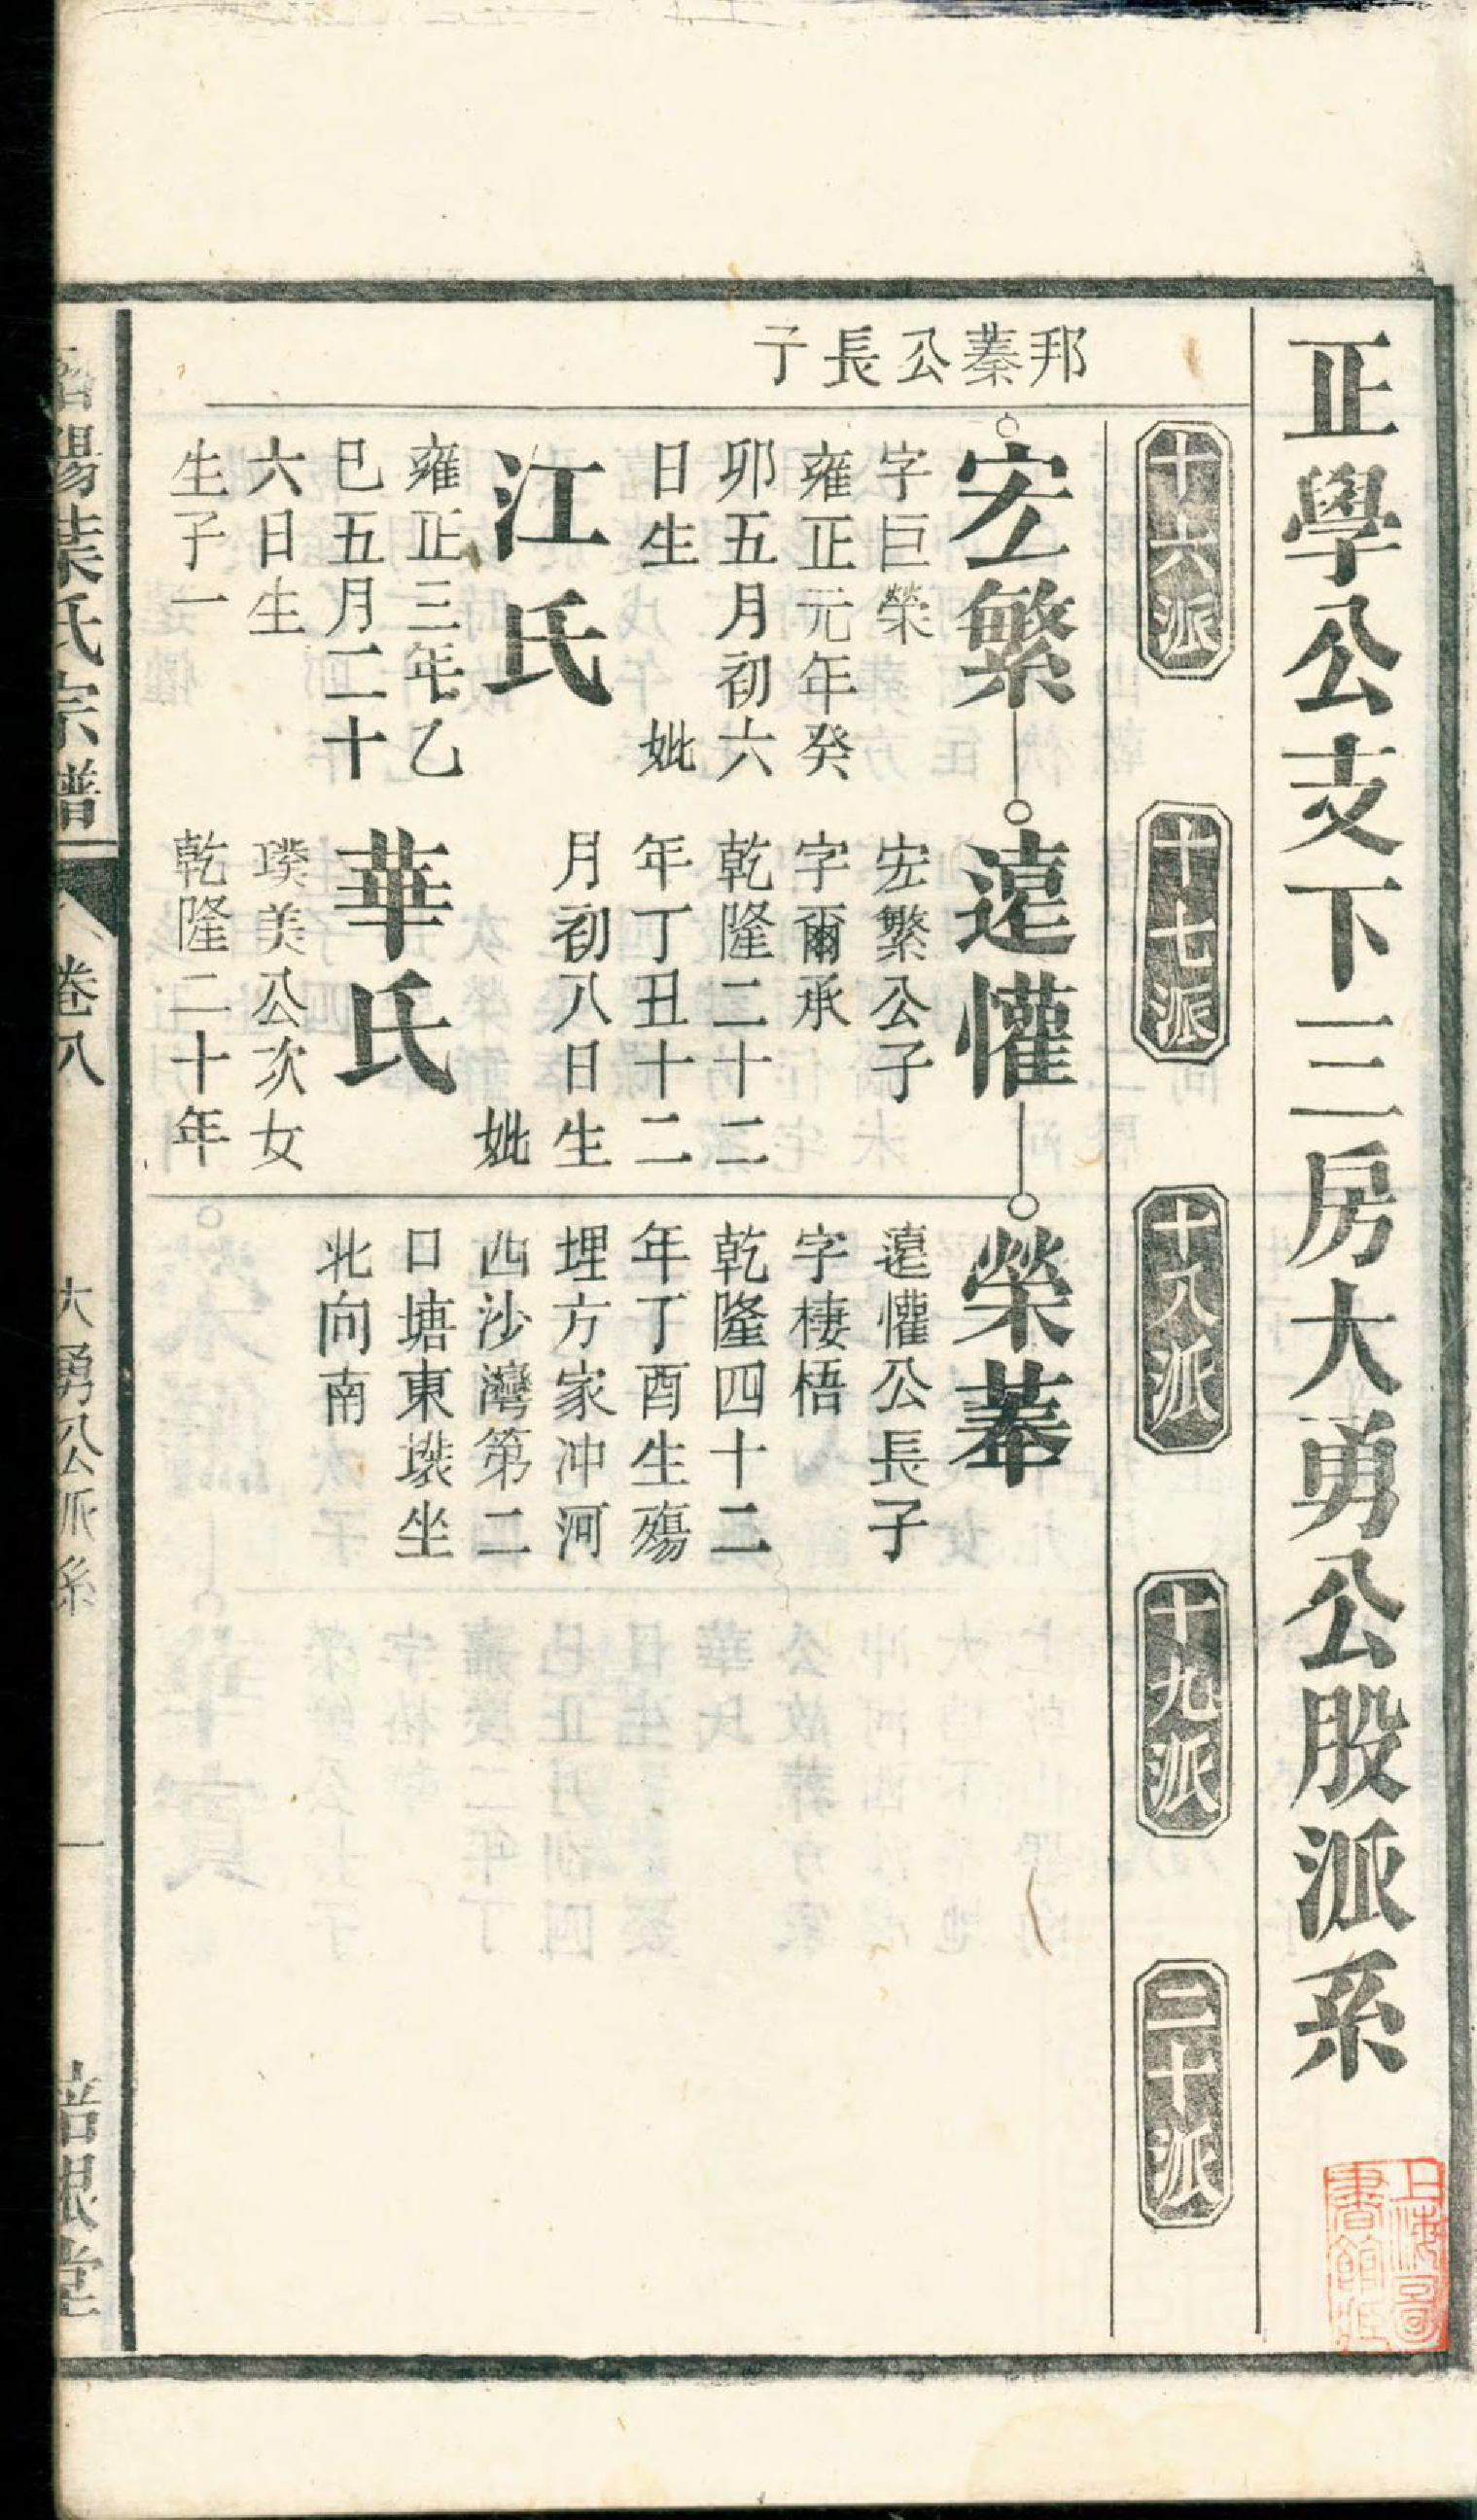 正學公支下三房大勇公股派系
十六派
十七派
十八派
十九派
二十派
邦蓁公長子
宏繁
字巨榮
雍正元年癸
卯五月初六
日生
妣
江氏
雍正三年乙
巳五月二十
六日生
生子一
遠懽
宏繁公子
字爾承
乾隆二十二
年丁丑十二
月初八日生
妣
華氏
璞美公次女
乾隆二十年
榮蓁
遠懽公長子
字棲梧
乾隆四十二
年丁酉生殤
埋方家冲河
西沙灣第二
口塘東塝坐
北向南
陽葉氏宗譜
卷八
大勇公派系
一
培根堂
上海圖
書館藏